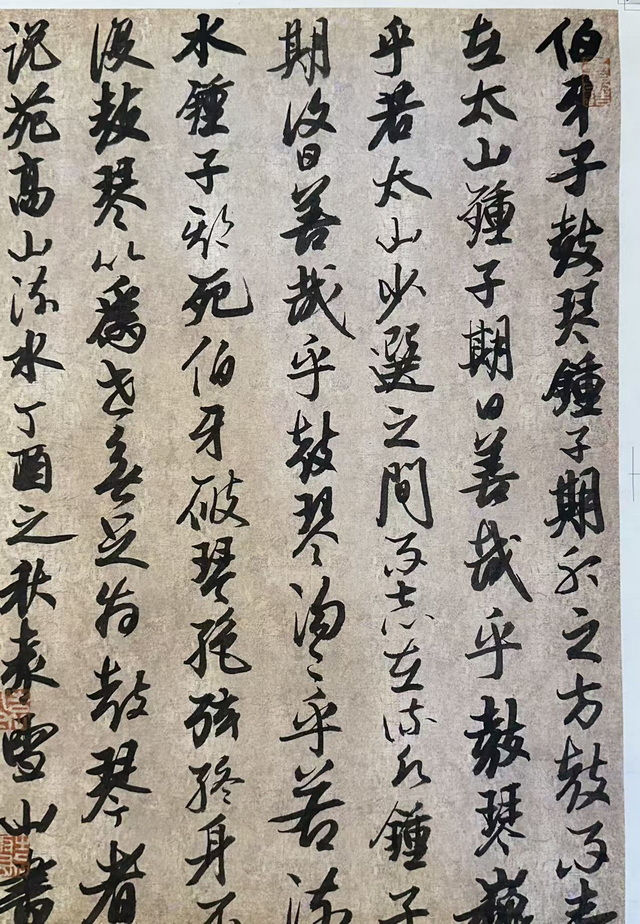 伯牙子鼓琴鍾子期聽之方鼓而志
在太山鍾子期曰善哉乎鼓琴巍
乎若太山少選之間而志在流水鍾子
期復曰善哉乎鼓琴湯〻乎若流
水鍾子期死伯牙破琴絕弦終身不
復鼓琴以為世無足為鼓琴者
說苑高山流水丁酉之秋袁雪山書